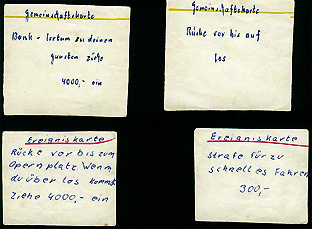 Gemeinschaftskarte
Bank-Irrtum zu deinen
Gunsten ziehe
4000,- ein
Gemeinschaftskarte
Rücke vor bis auf
los
Ereigniskarte
Rücke vor bis zum
Opernplatz. Wenn
du über los kommst
Ziehe 4000,- ein
Ereigniskarte
Strafe für zu
schnelles Fahren
300,-